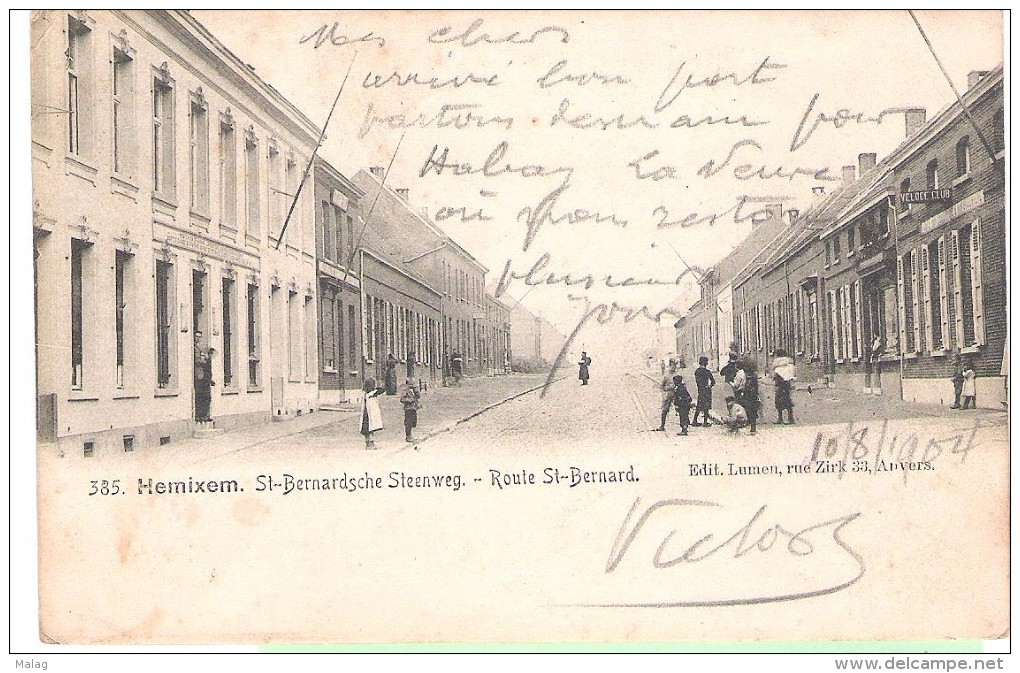 Mes chers
arrivé bon port
partons demain pour
Habay La Neuve
où nous restons
plusieurs
jours
VELOCE CLUB
10/8/1904
385. Hemixem. St-Bernardsche Steenweg. - Route St-Bernard.
Edit. Lumen, rue Zirk 33, Anvers.
Victor
Malag
www.delcampe.net